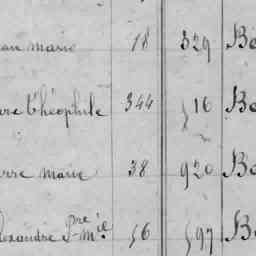 ean marie 18 329 Bo
rre théophile 344 516 Bo
erre marie 38 920 Bo
lexandre Pre mie 56 597 Bo